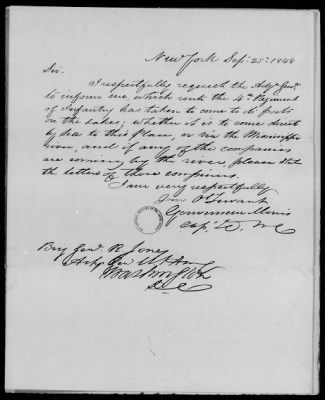 New York Sep. 25th 1848
Sir.
I respectfully request the Adjt. Genl.
to inform me, which route the 4th Regiment
of Infantry has taken to come to its posts
on the Lakes; whether it is to come direct
by Sea to this place, or via the Mississippi
river, and if any of the companies
are coming by the river, please state
the letters of those companies.
I am very respectfully
Your Obt Servant
Gouverneur Morris
Capt. 4th
Brig Genl. R. Jones
Adjt Gen U.S. Army
Washington
D.C.